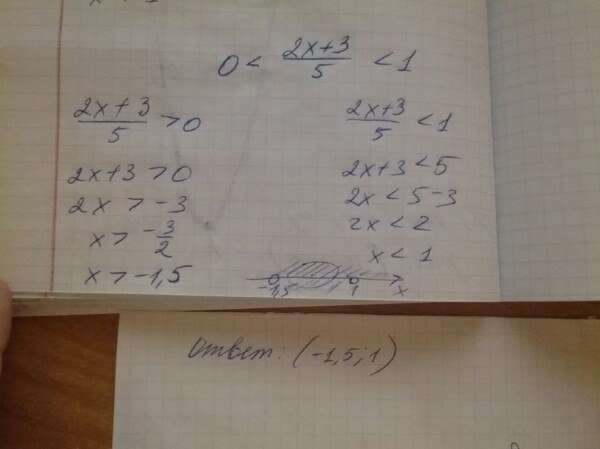 0 < (2x+3)/5 < 1
(2x+3)/5 > 0
2x+3 > 0
2x > -3
x > -3/2
x > -1,5
(2x+3)/5 < 1
2x+3 < 5
2x < 5-3
2x < 2
x < 1
-1,5 1 x
Ответ: (-1,5; 1)